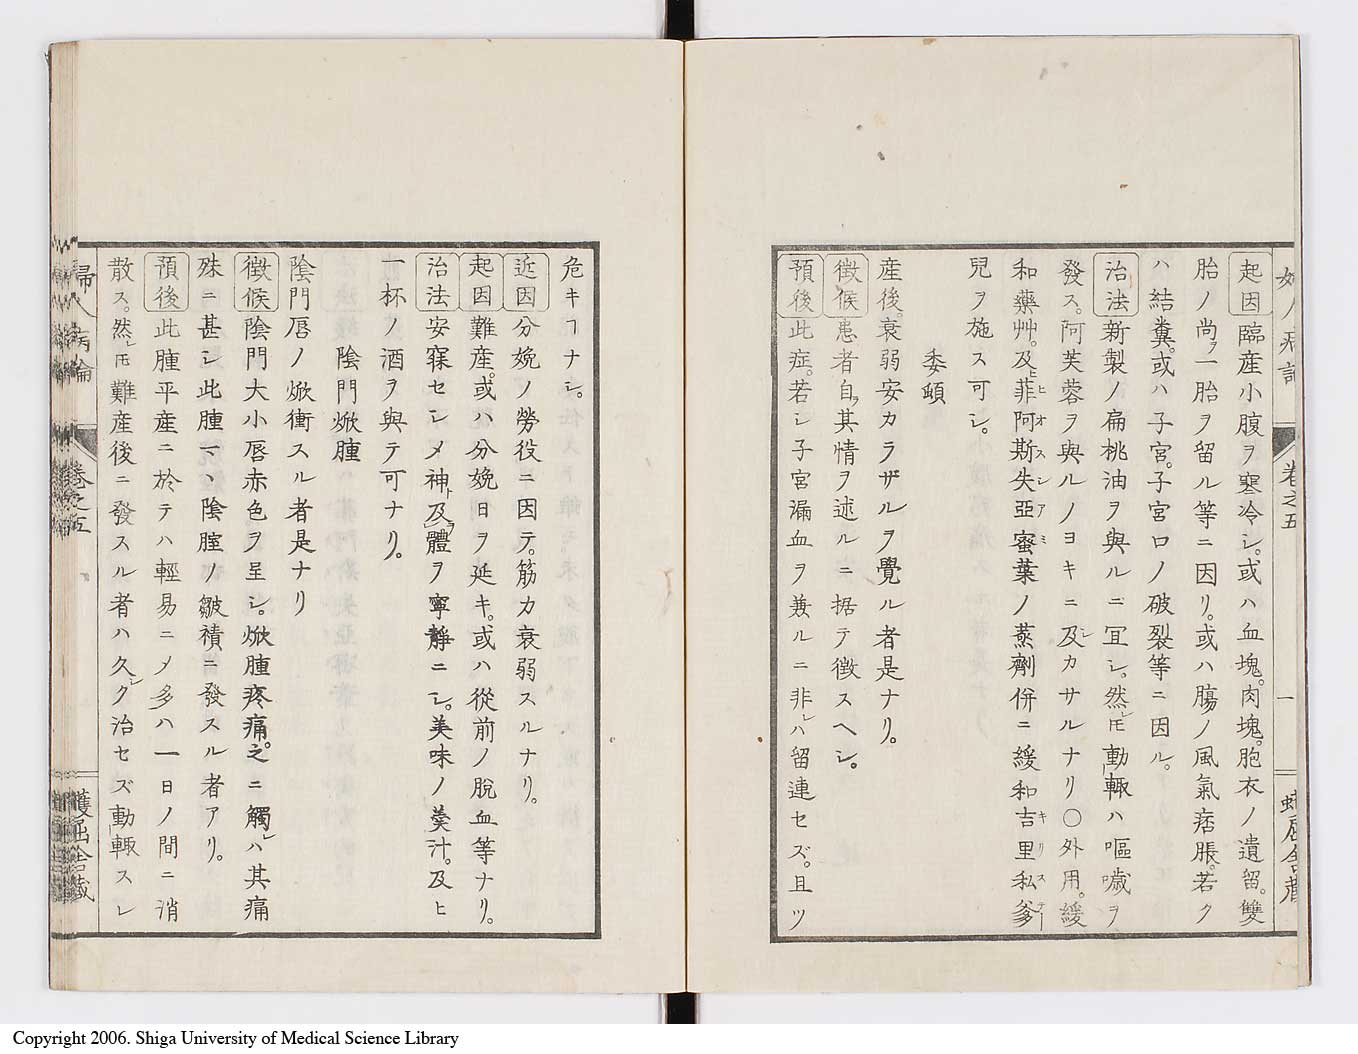 起因臨産小腹ヲ寒冷シ。或ハ血塊。肉塊。胞衣ノ遺留。雙
胎ノ尚ヲ一胎ヲ留ル等ニ因リ。或ハ膓ノ風氣痞脹。若ク
ハ結糞。或ハ子宮。子宮口ノ破裂等ニ因ル。
治法新製ノ扁桃油ヲ與ルニ冝シ。然レ𪜈動輙ハ嘔噦ヲ
發ス。阿芙蓉ヲ與ルノヨキニ及カサルナリ〇外用。緩
和藥艸。及ヒ菲阿斯失亞蜜葉ノ蒸劑併ニ緩和吉里私爹
兒ヲ施ス可シ。
委頓
産後。衰弱安カラザルヲ覺ル者是ナリ。
徴候患者自ラ其情ヲ述ルニ据テ徴スヘシ。
預後此症。若シ子宮漏血ヲ兼ルニ非レハ留連セズ。且ツ
危キヿナシ。
近因分娩ノ勞役ニ因テ。筋力衰弱スルナリ。
起因難産。或ハ分娩日ヲ延キ。或ハ從前ノ脱血等ナリ。
治法安寐セシメ神ト及ヲ體ヲ寧靜ニシ。美味ノ羹汁。及ヒ
一杯ノ酒ヲ與テ可ナリ。
陰門焮腫
陰門唇ノ焮衝スル者是ナリ
徴候陰門大小唇赤色ヲ呈シ。焮腫疼痛。之ニ觸レハ其痛
殊ニ甚シ此腫一丶陰腟ノ皺襀ニ發スル者アリ。
預後此腫平産ニ於テハ輕易ニメ多ハ一日ノ間ニ消
散ス。然レ𪜈難産後ニ發スル者ハ久シク治セズ動輙スレ
婦人病論
卷之五
一
Copyright 2006. Shiga University of Medical Science Library